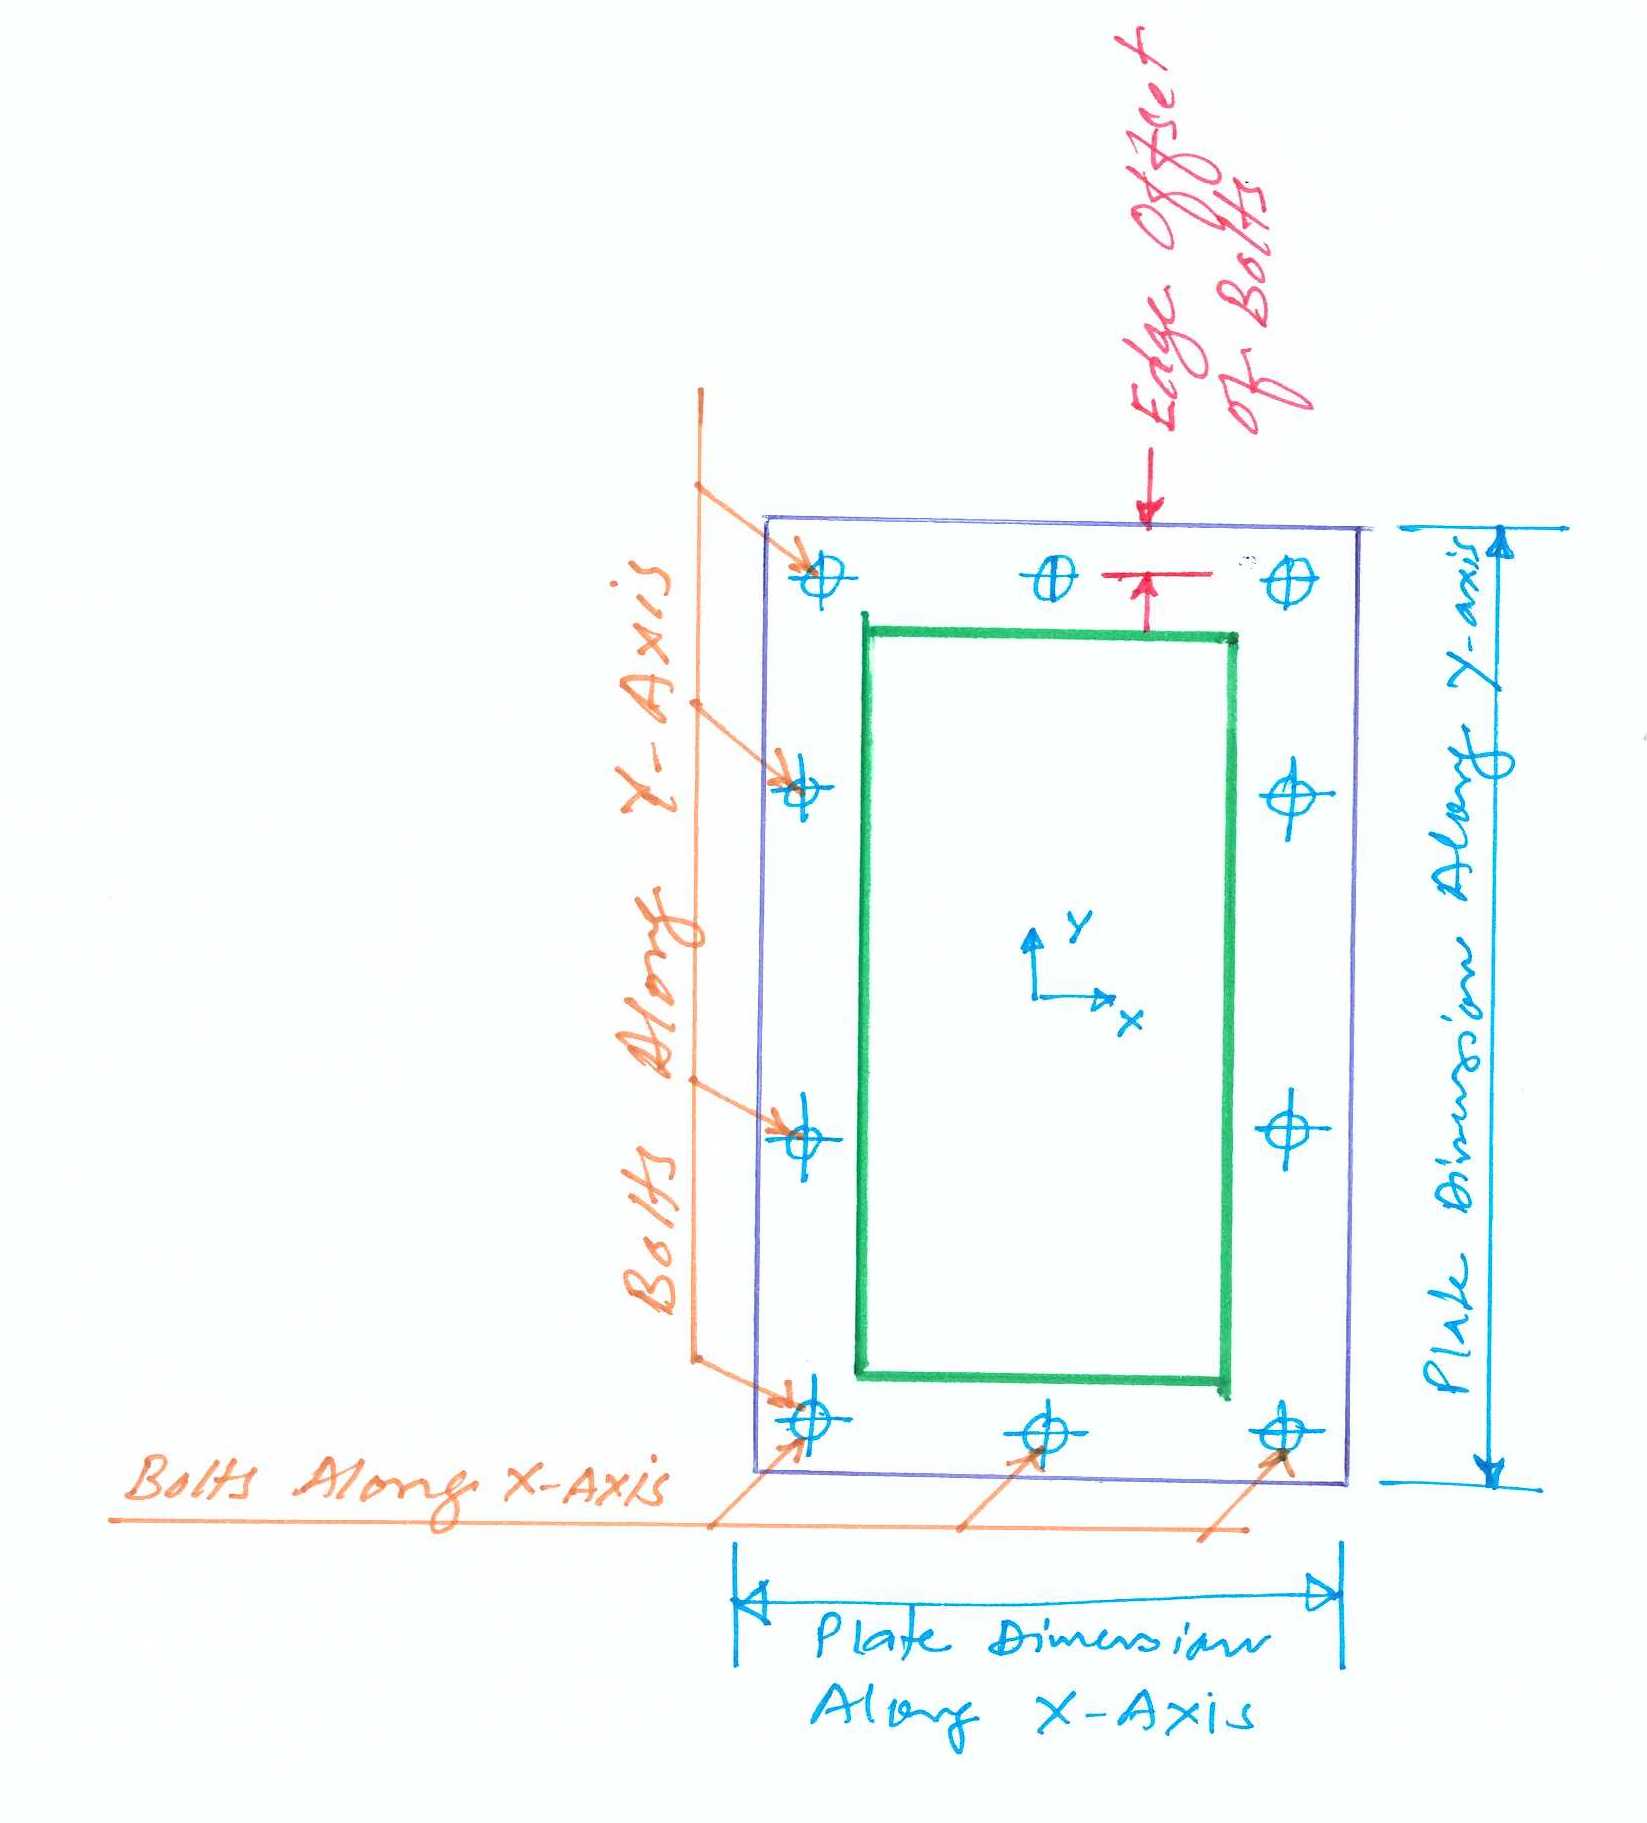 Edge Offset
of Bolts
Bolts Along Y-Axis
Plate Dimension Along Y-axis
Y
X
Bolts Along X-Axis
Plate Dimension
Along X-Axis